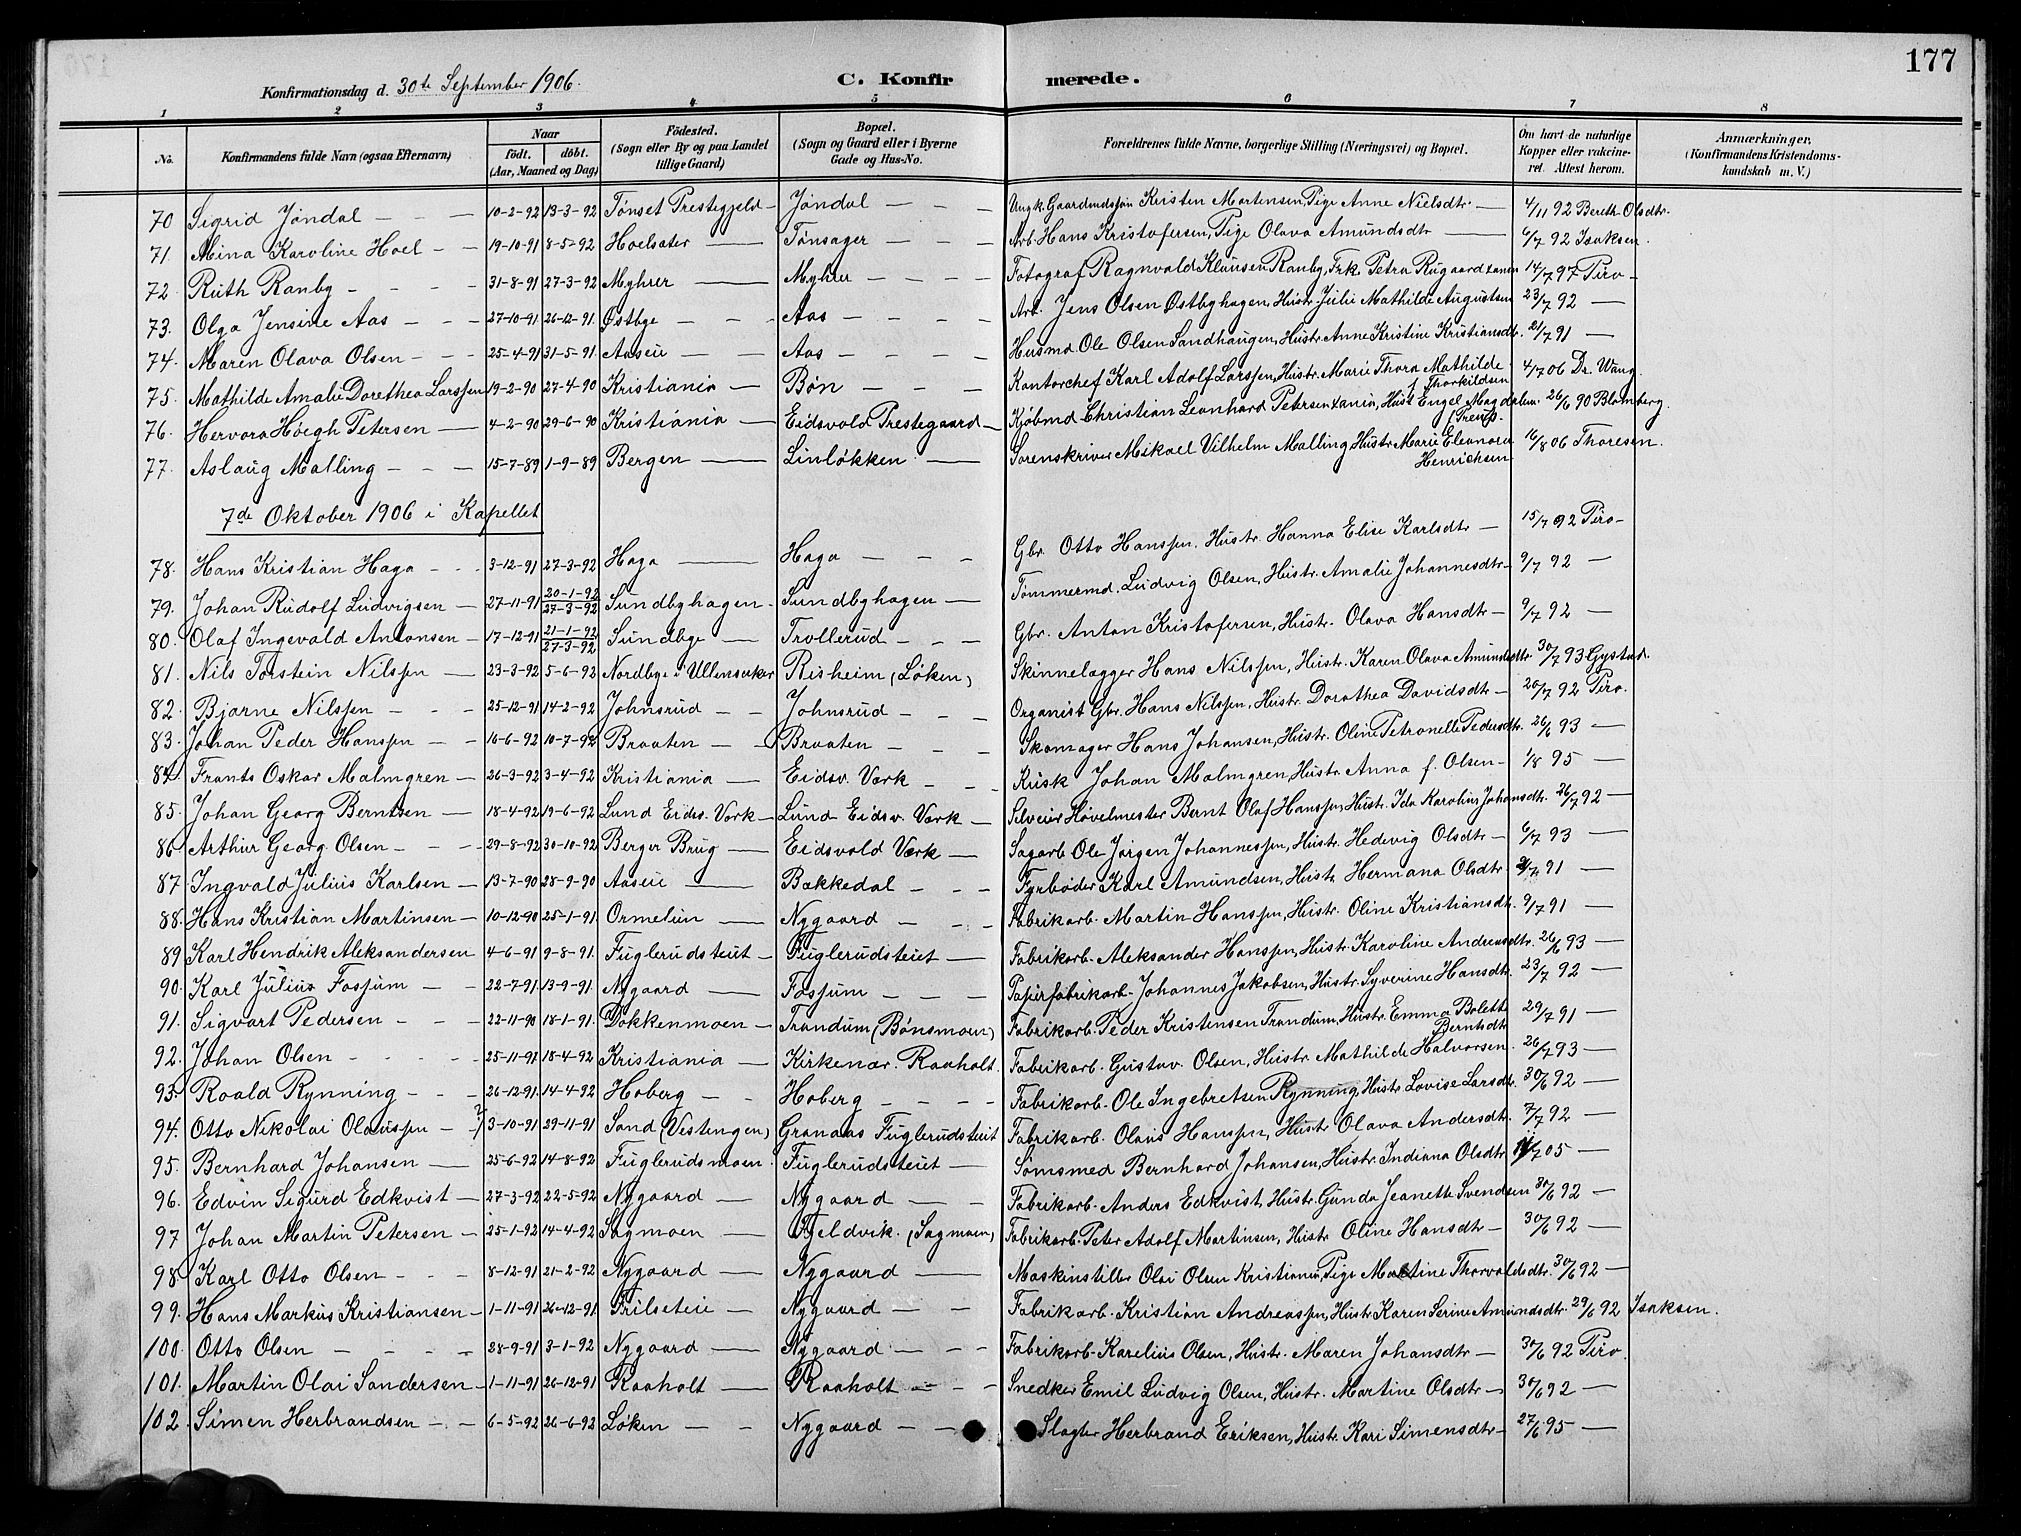 177
Konfirmationsdag d. 30te September 1906.
C. Konfirmerede.
1 2 3 4 5 6 7 8
No. Konfirmandens fulde Navn (ogsaa Efternavn) Naar födt. döbt. (Aar, Maaned og Dag) Födested. (Sogn eller By og paa Landet tillige Gaard) Bopæl. (Sogn og Gaard eller i Byerne Gade og Hus-No. Forældrenes fulde Navne, borgerlige Stilling (Næringsvei) og Bopæl. Om havt de naturlige Kopper eller vakcineret. Attest herom. Anmærkninger, (Konfirmandens Kristendomskundskab m. V.)
70 Sigrid Jøndal - 10-2-92 13-3-92 Tønset Prestegjeld - Jøndal - Ungk. Gaardmdssøn Kristen Mortensen, Pige Anne Nielsdtr. - 4/11 92 Bereth Olsdtr.
71. Mina Karoline Hoel - 19-10-91 8-5-92 Hoelsæter - Tønsager - Arb. Hans Kristofersen, Pige Olava Amundsdtr - 6/7 92 Isaksen.
72. Ruth Ranby - 31-8-91 27-3-92 Myhrer - Myhrer - Fotograf Ragnvald Klausen Ranby, Frk. Petra Rugaard 14/7 97 Piro -
73. Olga Jensine Aas - 27-10-91 26-12-91. Østbye - Aas - Arb. Jens Olsen Østbyhagen, Hustr. Julie Mathilde Augustsen 23/7 92 -
74. Maren Olava Olsen - 25-4-91 31-5-91. Aaseie - Aas - Husmd. Ole Olsen Sandhaugen, Hustr. Anne Kristine Kristiansdtr. 21/7 91 -
75. Mathilde Amalie Dorethea Larssen 19-2-90 27-4-90 Kristiania - Bøn - Kontorchef Karl Adolf Larssen, Hustr. Marie Thora Mathilde Thorkildsen 4/7 06 Dr. Wang.
76. Hervora Høegh Petersen - 4-2-90 29-6-90 Kristiania - Eidsvold Prestegaard - Kjøbmd Christian Leonhard Petersen, Hust. Engel Magdalene 26/6 90 Blomberg.
77. Aslaug Malling - 15-7-89 1-9-89 Bergen - Linløkken - Sorenskriver Mikael Vilhelm Malling, Hustr. Marie Eleonora Henrichsen 16/8 06 Thoresen.
7de Oktober 1906 i Kapellet
78. Hans Kristian Haga - 3-12-91 27-3-92 Haga - Haga - Gbr. Otto Hanssen, Hustr. Hanna Elise Karlsdtr - 15/7 92 Piro -
79. Johan Rudolf Ludvigsen - 27-11-91 20-1-92 27-3-92 Sundbyhagen - Sundbyhagen - Tømmermd. Ludvig Olsen, Hustr. Amalie Johannesdtr - 9/7 92 -
80. Olaf Ingevald Antonsen - 17-12-91 21-1-92 27-3-92 Sundbye - Trollerud - Gbr. Anton Kristofersen, Hustr. Olava Hansdtr - 9/7 92 -
81. Nils Torstein Nilssen - 23-3-92 5-6-92 Nordbye i Ullensaker Risheim (Løken) Skinnelægger Hans Nilssen, Hustr. Karen Olava Amundsdtr. 30/7 93 Gystad.
82. Bjarne Nilssen - 25-12-91 14-2-92 Johnsrud - Johnsrud - Organist Gbr. Hans Nilssen, Hustr. Dorothea Davidsdtr - 20/7 92 Piro.
83. Johan Peder Hanssen - 16-6-92 10-7-92 Braaten - Braaten - Skomager Hans Johansen, Hustr. Oline Petronelle Pedersdtr. 26/6 93 -
84. Frants Oskar Malmgren - 26-3-92 3-4-92 Kristiania - Eidsv. Værk - Kusk Johan Malmgren, Hustr. Anna f. Olsen - 1/8 95 -
85. Johan Georg Berntsen - 18-4-92 19-6-92 Lund Eidsv. Værk - Lund Eidsv. Værk - Selveier Høvelmester Bernt Olaf Hanssen, Hustr. Ida Karoline Johansdtr. 26/7 92 -
86. Arthur Georg Olsen - 29-8-92 30-10-92 Berger Brug - Eidsvold Værk - Sagarb. Ole Jørgen Johannessen, Hustr. Hedevig Olsdtr - 6/7 93 -
87. Ingvald Julius Karlsen - 13-7-90 28-9-90 Aaseie - Bækkedal - Fyrbøder Karl Amundsen, Hustr. Hermana Olsdtr 9/7 91 -
88. Hans Kristian Martinsen - 10-12-90 25-1-91. Ormelien - Nygaard - Fabrikarb. Martin Hanssen, Hustr. Oline Kristiansdtr. 9/7 91 -
89 Karl Hendrik Aleksandersen 4-6-91 9-8-91. Fuglerudsteiet - Fuglerudsteiet - Fabrikarb. Aleksander Hanssen, Hustr. Karoline Andreasdtr. 26/6 93 -
90. Karl Julius Fossum - 22-7-91 13-9-91. Nygaard - Fossum - Papirfabrikarb. Johannes Jakobsen, Hustr. Syverine Hansdtr. 23/7 92 -
91. Sigvart Pedersen - 22-11-90 18-1-91. Dokkenmoen - Trandum (Bønsmoen) Fabrikarb. Peder Kristensen Trandum, Hustr. Emma Bolette Berntsdtr 29/7 91 -
92. Johan Olsen - 25-11-91 18-4-92 Kristiania - Kirkenær. Raaholt. Fabrikarb. Gustav. Olsen, Hustr. Mathilde Halvorsen. 26/7 93 -
93. Roald Rynning - 26-12-91. 14-4-92 Hoberg - Hoberg - Fabrikarb. Ole Ingebretsen Rynning, Hustr. Lovise Larsdtr. 30/6 92 -
94. Otto Nikolai Olaussen - 3-10-91 29-11-91 Sand (Vestengen) Granaas Fuglerudsteiet Fabrikarb. Olaus Hanssen, Hustr. Olava Andersdtr. 7/7 92 -
95. Bernhard Johansen - 25-6-92 14-8-92 Fuglerudsmoen. Fuglerudsteiet - Sømsmed Bernhard Johansen, Hustr. Indiana Olsdtr 05 -
96. Edvin Sigurd Edkvist - 27-3-92 22-5-92 Nygaard - Nygaard - Fabrikarb. Anders Edkvist, Hustr. Gunda Jeanette Svendsen 30/6 92 -
97 Johan Martin Petersen - 25-1-92 14-4-92 Sagmoen - Fjeldvik. (Sagmoen) Fabrikarb. Peter Adolf Martinsen, Hustr. Oline Hansdtr - 30/6 92 -
98. Karl Otto Olsen - 8-12-91 21-2-92 Nygaard - Nygaard - Maskinstiller Olei Olsen Kristiania, Pige Martine Thorvaldsdtr. 30/6 92 -
99. Hans Markus Kristiansen - 1-11-91 26-12-91. Frilseteie - Nygaard - Fabrikarb. Kristian Andreassen, Hustr. Karen Serine Amundsdtr. 29/6 92 Isaksen.
100. Otto Olsen - 28-9-91 3-1-92 Nygaard - Nygaard - Fabrikarb. Karelius Olsen, Hustr. Maren Johansdtr - 30/6 92 Piro.
101. Martin Olai Sandersen - 1-11-91 26-12-91 Raaholt - Raaholt - Snedker Emil Ludvig Olsen, Hustr. Martine Olsdtr - 30/6 92 -
102. Simen Herbrandsen - 6-5-92 26-6-92 Løken - Nygaard - Slagter Herbrand Eriksen, Hustr. Kari Simensdtr - 27/6 95 -